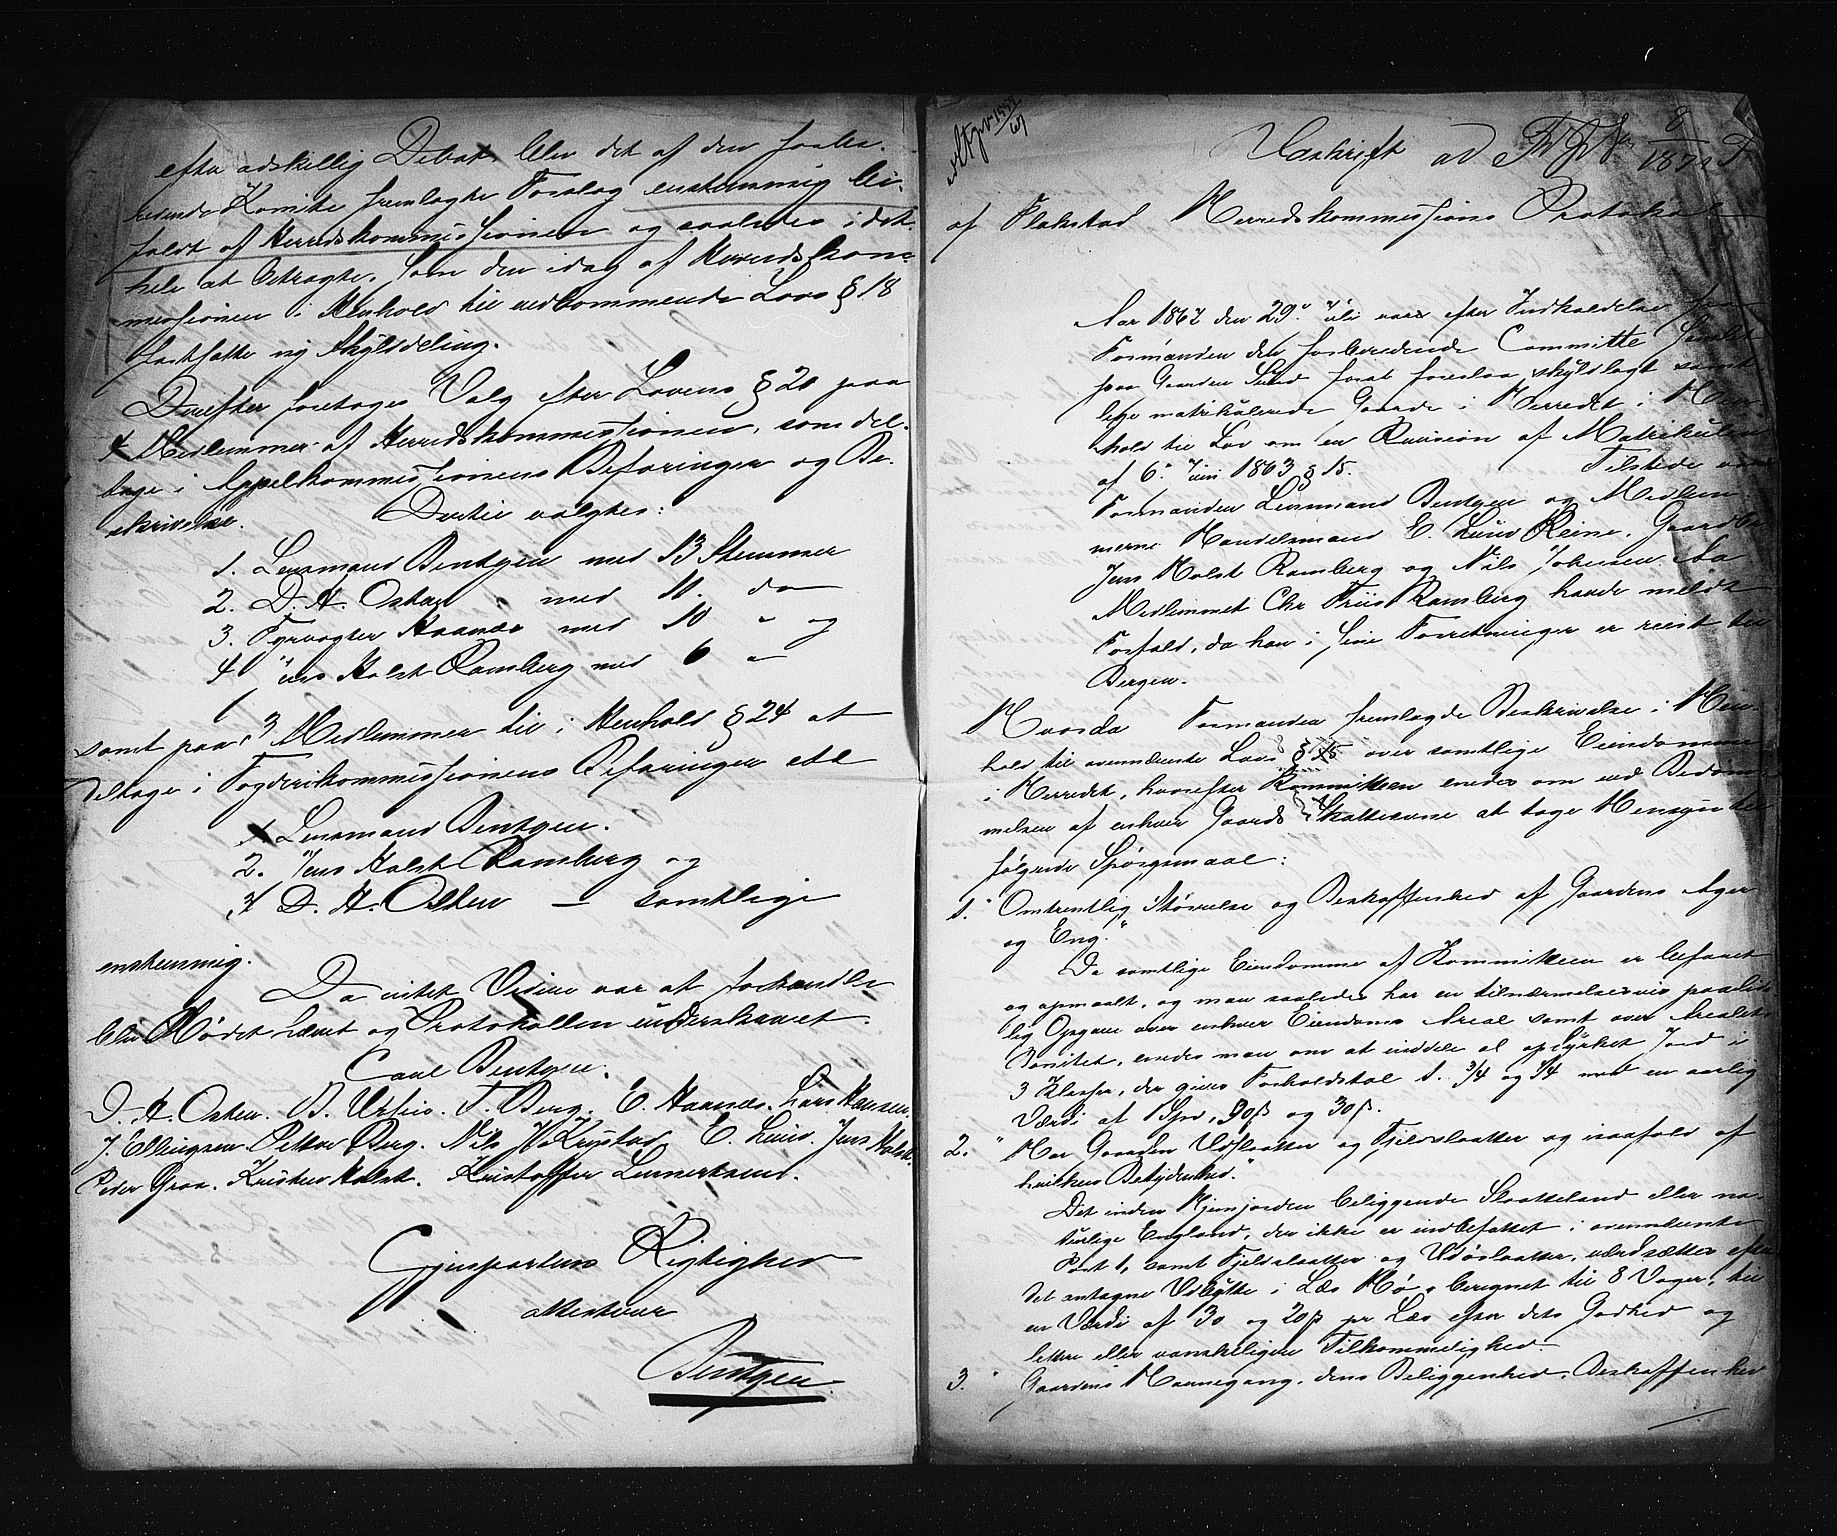 efter adskillig Debat blev det af den forbe-
redende Komite fremlagte Forslag enstemmig bi-
faldt af Herredskommissionen og saaledes i det
hele at betragte, som den idag af Herredskom-
missionen i Henhold til vedkommende Lovs § 18
fastsatte ny Skylddeling.
Derefter foretoges Valg efter Lovens § 20 paa
4 Medlemmer af Herredskommissionen, som del-
tage i Appelkommissionens Befaringer og Be-
skrivelse. Dertil valgtes:
1. Lensmand Bentzen med 13 Stemmer
2. D. A. Osten med 11. do
3. Fyrvogter Haanæs med 10 " og
4 Jens Holst Ramberg med 6 "
samt paa 3 Medlemmer til i Henhold § 24 at
deltage i Fogderikommissionens Befaringer etc
1 Lensmand Bentzen.
2. Jens Holst Ramberg og
3 D. A. Osten — samtlige
enstemmig.
Da intet Videre var at forhandle
blev Mødet hævet og Protokollen underskrevet.
Carl Bentzen.
D. A. Osten. B. Ursin. T. Berg. E. Haanæs. Lars Hansen.
J. Ellingsen Petter Berg. Nils Krystad E. Lund. Jens Holst.
Peder Graa. Kristen Holst. Kristoffer Lennertsen.
Gjenpartens Rigtighed
attesterer
Bentzen.
Udskrift ad 8/1871
af Flakstad Herredskommissions Protokol
Aar 1867 den 29de Juli var efter Indkaldelse fra
Formanden den forberedende Committe samlet
paa Gaarden Sund forat foreslaa skyldlagt samt-
lige matrikulerede Gaarde i Herredet i Hen-
hold til Lov om en Revision af Matrikulen
af 6te Juni 1863 § 15. Tilstede var
Formanden Lensmand Bentzen og Medlem-
merne Handelsmand E. Lund Reine, Gaardbr.
Jens Holst Ramberg og Nils Johansen Aa.
Medlemmet Chr Friis Ramberg havde meldt
Forfald, da han i sine Forretninger er reist til
Bergen.
Hvorda Formanden fremlagde Beskrivelse i Hen-
hold til ovennævnte Lovs § 15 over samtlige Eiendomme
i Herredet, hvorefter Kommitteen enedes om ved Bedøm-
melsen af enhver Gaards Skatteevne at tage Hensyn til
følgende Spørgsmaal:
1. "Omtrentlig Størrelse og Beskaffenhed af Gaardens Ager
og Eng."
Da samtlige Eiendomme af Kommitteen er befaret
og opmaalt, og man saaledes har en tilnærmelsesvis paalide-
lig Opgave over enhver Eiendoms Areal samt over Arealets
Bonitet, enedes man om at inddele al opdyrket Jord i
3 Klasser, der gives Forholdstal 1. 3/4 og 1/4 med en aarlig
Værdi af 1 Spd, 90 ß og 30 ß.
2. "Har Gaarden Udslaatter og Fjeldslaatter og isaafald af
hvilken Betydenhed."
Det inden Hjemjorden beliggende Slaatteland eller na-
turlige England, der ikke er indbefattet i ovennævnte
Post 1, samt Fjeldslaatter og Udøslaatter, værdsættes efter
det antagne Udbytte i Læs Hø, beregnet til 8 Voger, til
en Værdi af 30 og 20 ß pr Læs efter dets Godhed og
lettere eller vanskeligere Tilkommelighed.
3. "Gaardens Havnegang, dens Beliggenhed, Beskaffenhed